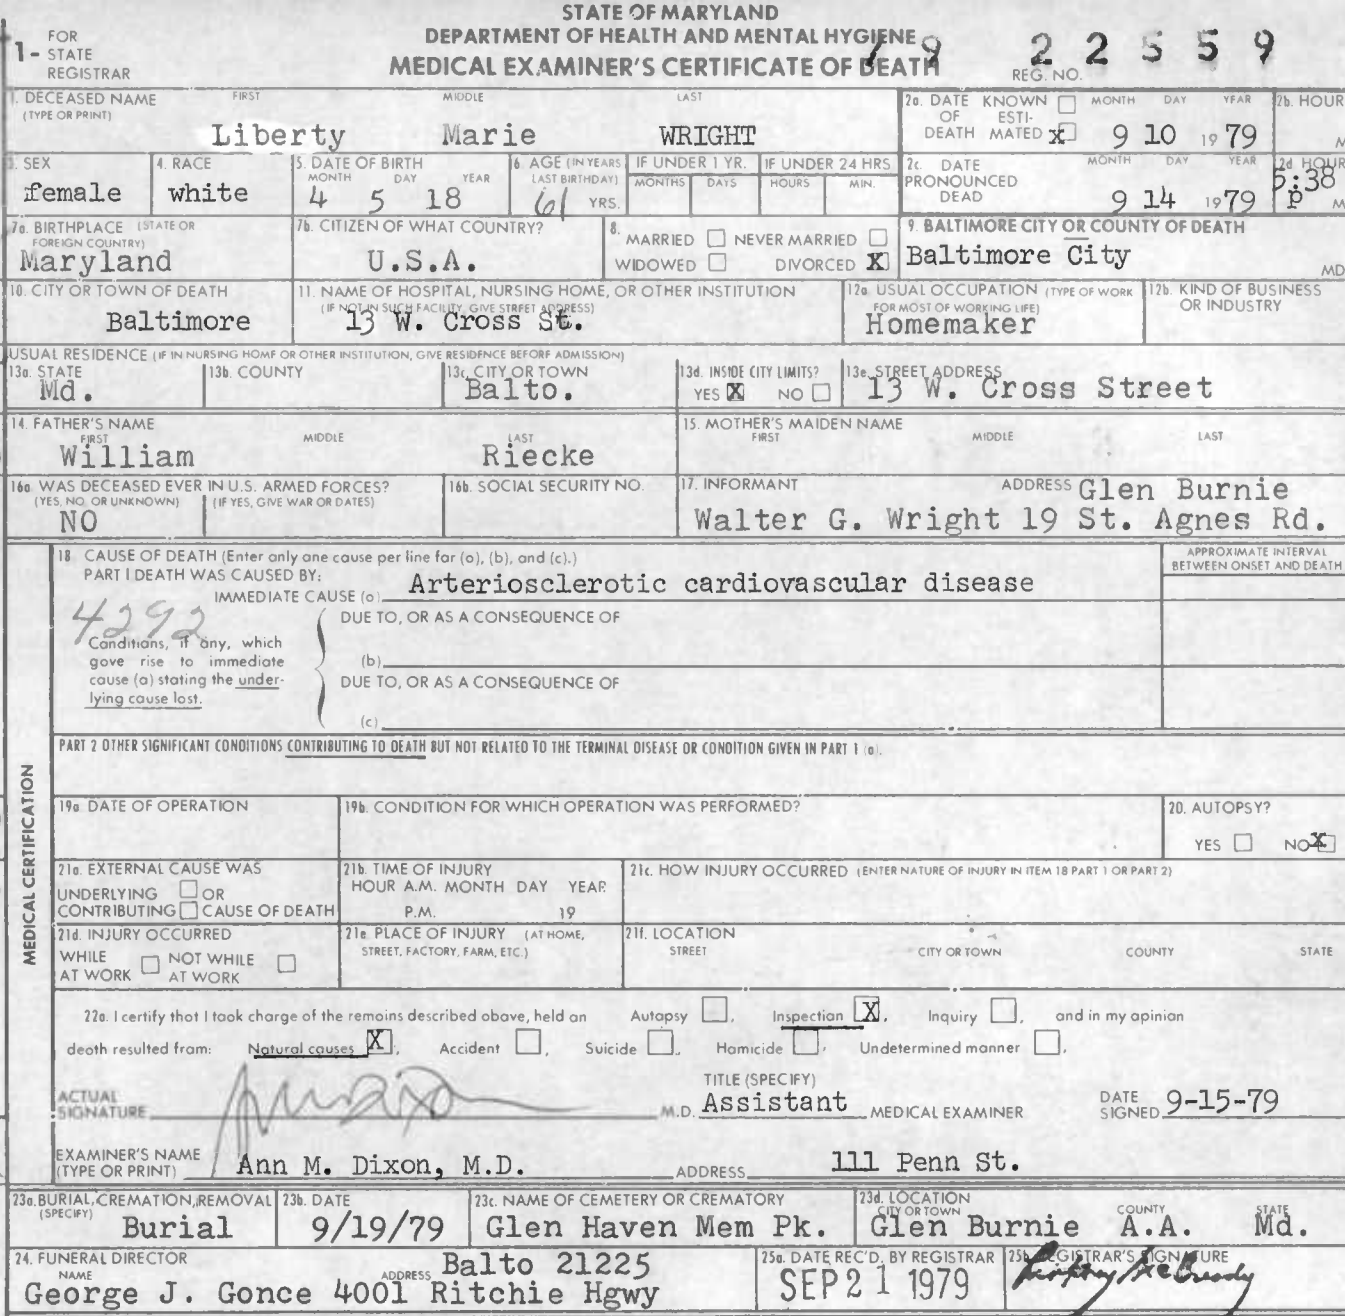 STATE OF MARYLAND
DEPARTMENT OF HEALTH AND MENTAL HYGIENE
MEDICAL EXAMINER'S CERTIFICATE OF DEATH
1- FOR STATE REGISTRAR
79 22559
REG. NO.
1. DECEASED NAME (TYPE OR PRINT) FIRST MIDDLE LAST
Liberty Marie WRIGHT
2a. DATE OF DEATH KNOWN ☐ ESTIMATED ☒ MONTH DAY YEAR
9 10 1979
2b. HOUR
M
3. SEX
female
4. RACE
white
5. DATE OF BIRTH MONTH DAY YEAR
4 5 18
6. AGE (IN YEARS LAST BIRTHDAY)
61 YRS.
IF UNDER 1 YR. MONTHS DAYS
IF UNDER 24 HRS HOURS MIN.
2c. DATE PRONOUNCED DEAD MONTH DAY YEAR
9 14 1979
2d. HOUR
5:38 P M
7a. BIRTHPLACE (STATE OR FOREIGN COUNTRY)
Maryland
7b. CITIZEN OF WHAT COUNTRY?
U.S.A.
8. MARRIED ☐ NEVER MARRIED ☐
WIDOWED ☐ DIVORCED ☒
9. BALTIMORE CITY OR COUNTY OF DEATH
Baltimore City MD
10. CITY OR TOWN OF DEATH
Baltimore
11. NAME OF HOSPITAL, NURSING HOME, OR OTHER INSTITUTION
(IF NOT IN SUCH FACILITY, GIVE STREET ADDRESS)
13 W. Cross St.
12a. USUAL OCCUPATION (TYPE OF WORK FOR MOST OF WORKING LIFE)
Homemaker
12b. KIND OF BUSINESS OR INDUSTRY
USUAL RESIDENCE (IF IN NURSING HOME OR OTHER INSTITUTION, GIVE RESIDENCE BEFORE ADMISSION)
13a. STATE
Md.
13b. COUNTY
13c. CITY OR TOWN
Balto.
13d. INSIDE CITY LIMITS?
YES ☒ NO ☐
13e. STREET ADDRESS
13 W. Cross Street
14. FATHER'S NAME FIRST MIDDLE LAST
William Riecke
15. MOTHER'S MAIDEN NAME FIRST MIDDLE LAST
16a. WAS DECEASED EVER IN U.S. ARMED FORCES?
(YES, NO, OR UNKNOWN) (IF YES, GIVE WAR OR DATES)
NO
16b. SOCIAL SECURITY NO.
17. INFORMANT ADDRESS Glen Burnie
Walter G. Wright 19 St. Agnes Rd.
MEDICAL CERTIFICATION
18. CAUSE OF DEATH (Enter only one cause per line for (a), (b), and (c).)
PART I DEATH WAS CAUSED BY:
IMMEDIATE CAUSE (a) Arteriosclerotic cardiovascular disease
APPROXIMATE INTERVAL BETWEEN ONSET AND DEATH
4292
DUE TO, OR AS A CONSEQUENCE OF
Conditions, if any, which gove rise to immediate cause (a) stating the underlying cause lost.
(b)
DUE TO, OR AS A CONSEQUENCE OF
(c)
PART 2 OTHER SIGNIFICANT CONDITIONS CONTRIBUTING TO DEATH BUT NOT RELATED TO THE TERMINAL DISEASE OR CONDITION GIVEN IN PART 1 (a).
19a. DATE OF OPERATION
19b. CONDITION FOR WHICH OPERATION WAS PERFORMED?
20. AUTOPSY?
YES ☐ NO ☒
21a. EXTERNAL CAUSE WAS
UNDERLYING ☐ OR
CONTRIBUTING ☐ CAUSE OF DEATH
21b. TIME OF INJURY
HOUR A.M. MONTH DAY YEAR
P.M. 19
21c. HOW INJURY OCCURRED (ENTER NATURE OF INJURY IN ITEM 18 PART 1 OR PART 2)
21d. INJURY OCCURRED
WHILE AT WORK ☐ NOT WHILE AT WORK ☐
21e. PLACE OF INJURY (AT HOME, STREET, FACTORY, FARM, ETC.)
21f. LOCATION
STREET CITY OR TOWN COUNTY STATE
22a. I certify that I took charge of the remains described above, held an Autopsy ☐, Inspection ☒, Inquiry ☐, and in my opinion
death resulted from: Natural causes ☒, Accident ☐, Suicide ☐, Homicide ☐, Undetermined manner ☐.
ACTUAL SIGNATURE M.D.
TITLE (SPECIFY)
Assistant MEDICAL EXAMINER
DATE SIGNED 9-15-79
EXAMINER'S NAME (TYPE OR PRINT) Ann M. Dixon, M.D.
ADDRESS 111 Penn St.
23a. BURIAL, CREMATION, REMOVAL (SPECIFY)
Burial
23b. DATE
9/19/79
23c. NAME OF CEMETERY OR CREMATORY
Glen Haven Mem Pk.
23d. LOCATION CITY OR TOWN COUNTY STATE
Glen Burnie A.A. Md.
24. FUNERAL DIRECTOR
NAME ADDRESS Balto 21225
George J. Gonce 4001 Ritchie Hgwy
25a. DATE REC'D. BY REGISTRAR
SEP 21 1979
25b. REGISTRAR'S SIGNATURE